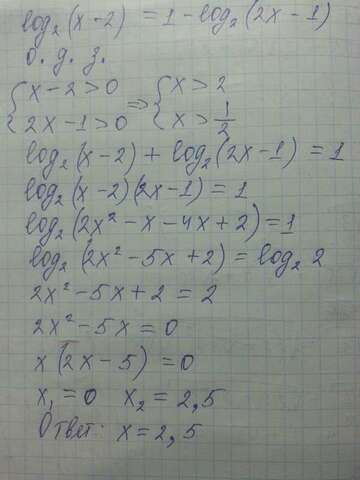 log₂(x-2) = 1-log₂(2x-1)
о. д. з.
{x-2>0 => {x>2
{2x-1>0 {x>1/2
log₂(x-2) + log₂(2x-1) = 1
log₂(x-2)(2x-1) = 1
log₂(2x²-x-4x+2) = 1
log₂(2x²-5x+2) = log₂ 2
2x²-5x+2 = 2
2x²-5x = 0
x(2x-5) = 0
x₁ = 0 x₂ = 2,5
Ответ: x = 2,5